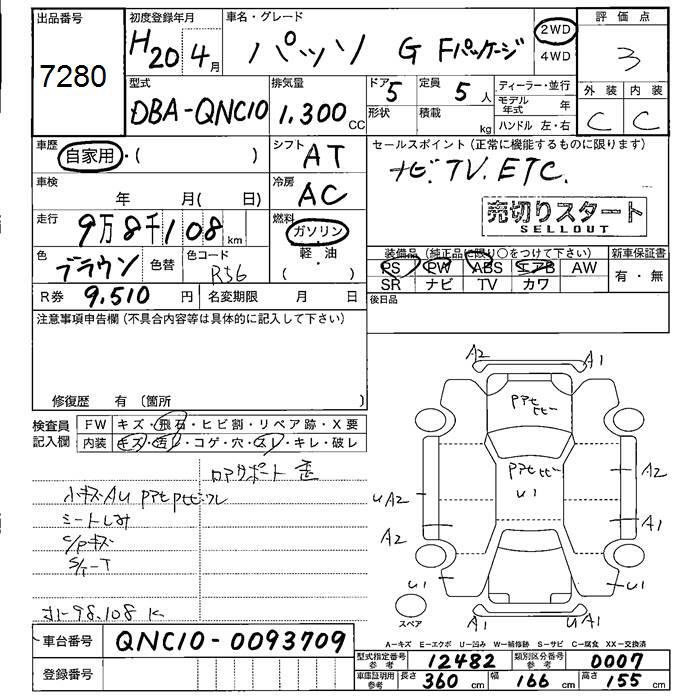 出品番号 初度登録年月 車名・グレード 評価点
7280 H20年4月 パッソ G Fパッケージ 2WD 4WD 3
型式 排気量 ドア 5 定員 5人 ディーラー・並行 外装 内装
DBA-QNC10 1,300cc 形状 積載 kg モデル年式 年 C C
ハンドル 左・右
車歴 自家用・( ) シフト AT セールスポイント(正常に機能するものに限ります)
車検 年 月( 日) 冷房 AC ナビ.TV.ETC.
売切りスタート
SELLOUT
走行 9万8千108km 燃料 ガソリン 軽・油 ( )
装備品(純正品に限り○をつけて下さい) 新車保証書
色 ブラウン 色替 色コード R56
PS PW ABS エアB AW 有・無
SR ナビ TV カワ
R券 9,510円 名変期限 月 日 後日品
注意事項申告欄(不具合内容等は具体的に記入して下さい)
修復歴 有(箇所 )
検査員記入欄 FW キズ・飛石・ヒビ割・リペア跡・X要
内装 キズ・汚レ・コゲ・穴・スレ・キレ・破レ
ロアサポート 歪
小キズAU
シートしみ
C/Pキズ
98,108 K
A2 A1
A2
UA2 U1
A2 A1
U1 U1
スペア A1 UA1
A-キズ E-エクボ U-凹み W-補修跡 S-サビ C-腐食 XX-交換済
車台番号 QNC10-0093709
型式指定番号 参考 12482 類別区分番号 参考 0007
登録番号 車庫証明用 参考 長さ 360cm 幅 166cm 高さ 155cm